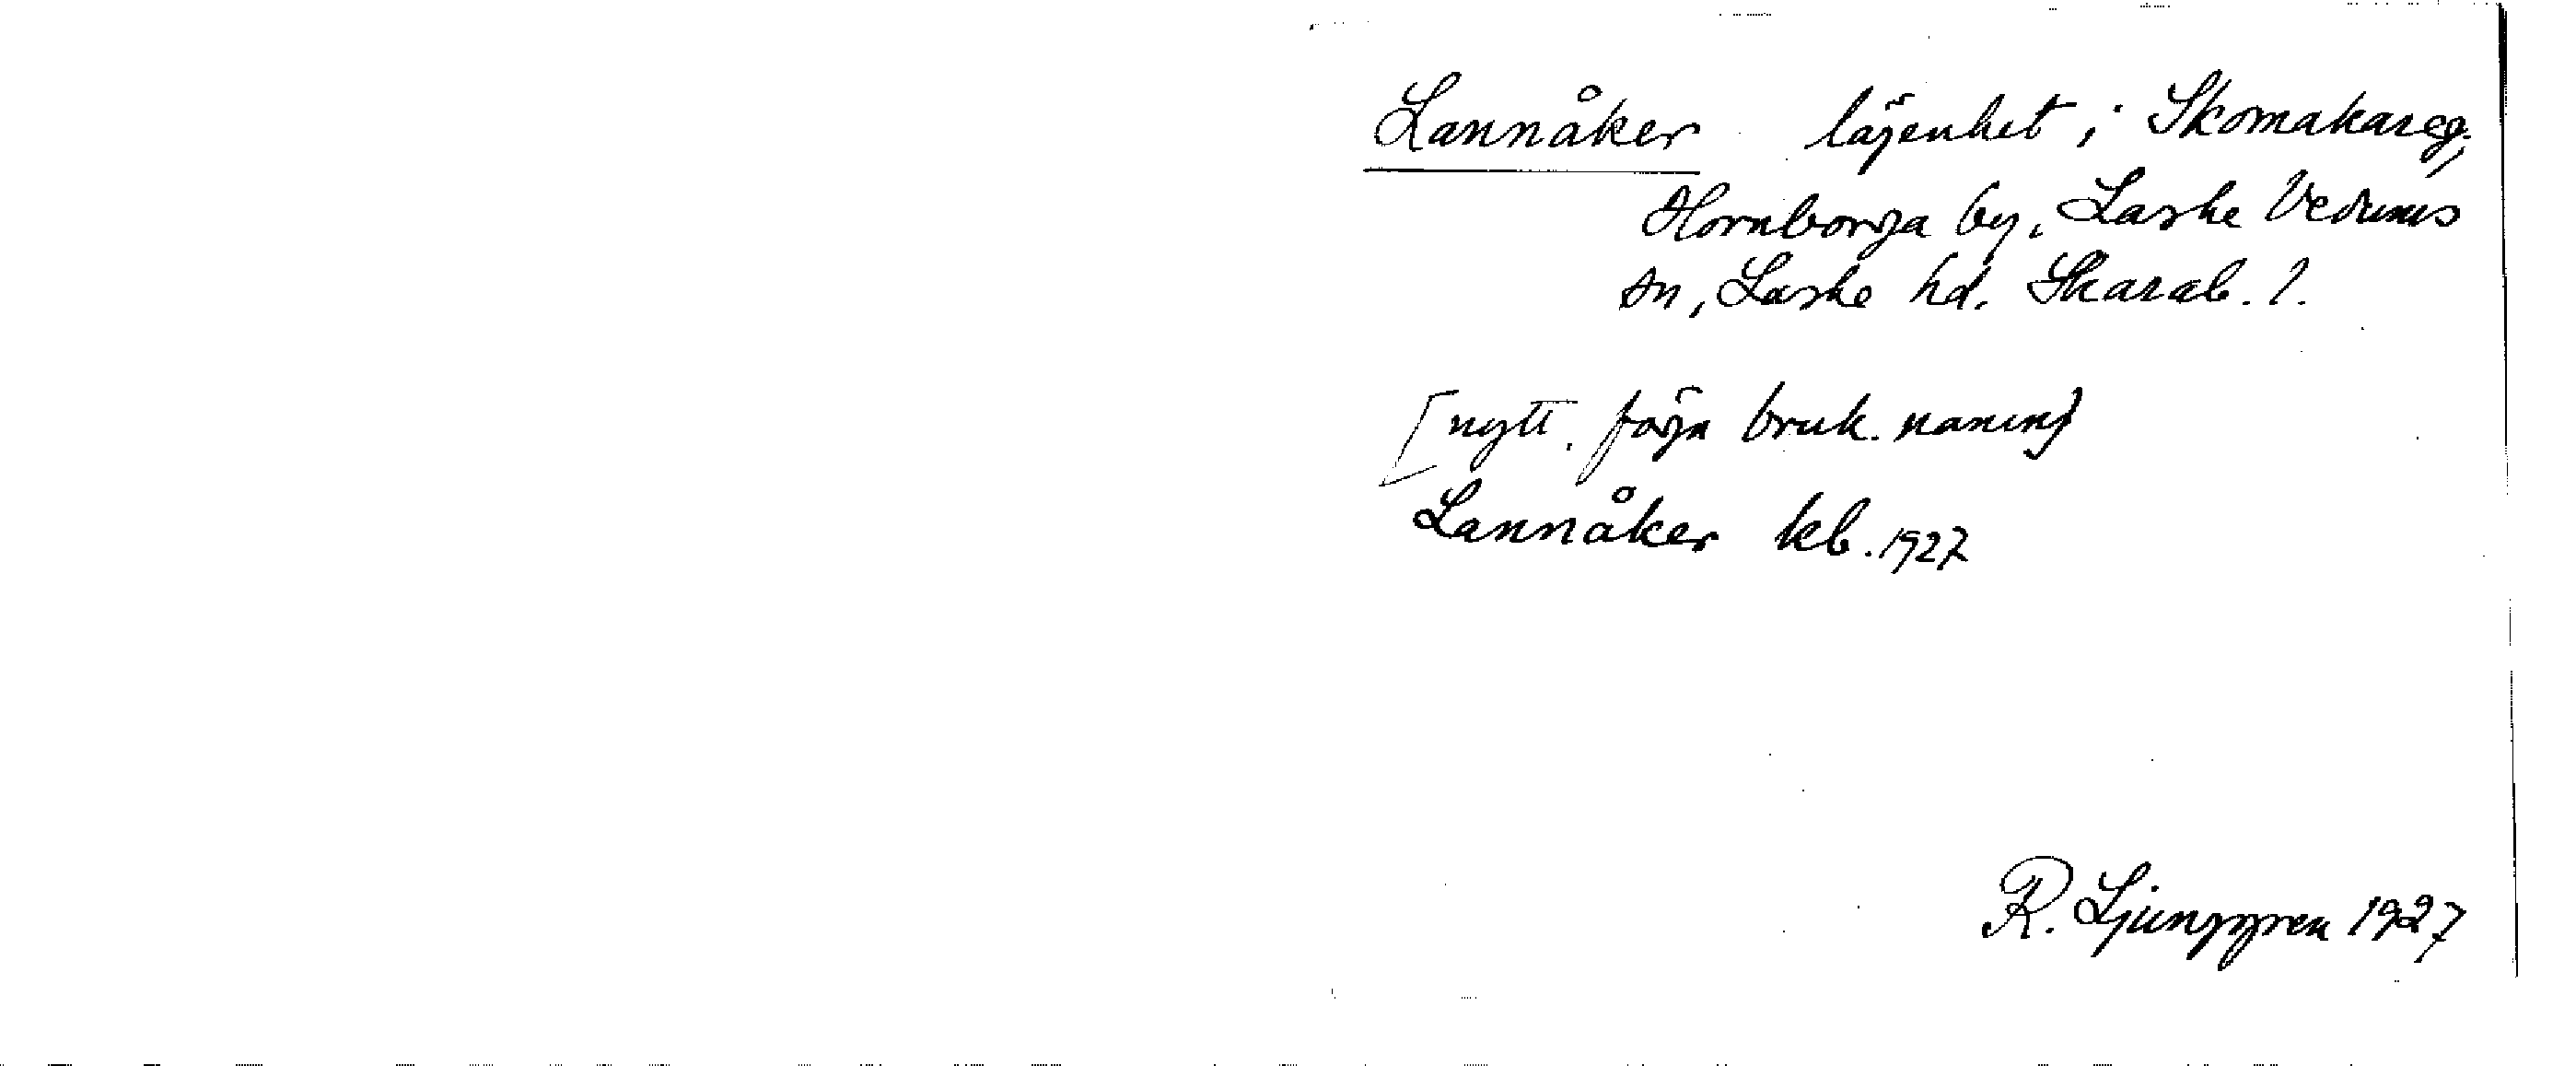 Lannåker lägenhet i Skomakareg.,
Hornborga by, Laske Vedums
sn, Laske hd. Skarab. l.
[nytt. föga bruk. namn]
Lannåker kb. 1927
R. Ljunggren 1927